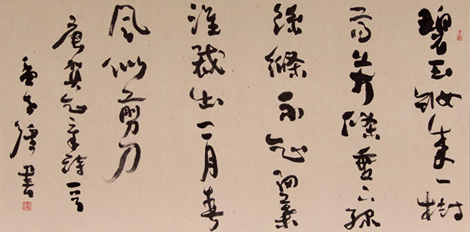 碧玉妝成一樹
高萬條垂下綠
絲絛不知細葉
誰裁出二月春
風似剪刀
唐賀知章詩一首
書